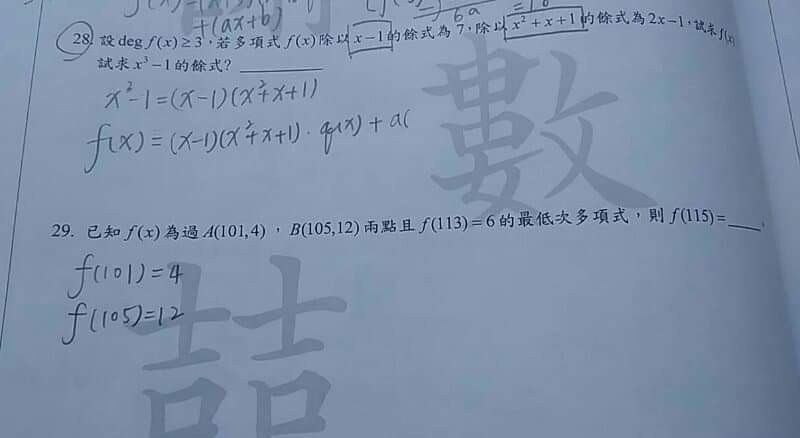 +(ax+b)
6a
28. 設deg f(x)≥3，若多項式f(x)除以x−1的餘式為7，除以x²+x+1的餘式為2x−1，試求f(x)
試求x³−1的餘式？
x³-1=(x-1)(x²+x+1)
f(x)=(x-1)(x²+x+1)·q(x)+a(
數
29. 已知f(x)為過A(101,4)，B(105,12)兩點且f(113)=6的最低次多項式，則f(115)=____.
f(101)=4
f(105)=12
喆